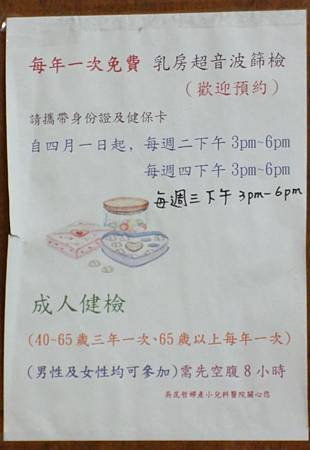 每年一次免費 乳房超音波篩檢
（歡迎預約）
請攜帶身份證及健保卡
自四月一日起，每週二下午 3pm~6pm
每週四下午 3pm~6pm
每週三下午 3pm-6pm
成人健檢
(40~65歲三年一次、65歲以上每年一次)
(男性及女性均可參加)需先空腹8小時
吳昆哲婦產小兒科醫院關心您